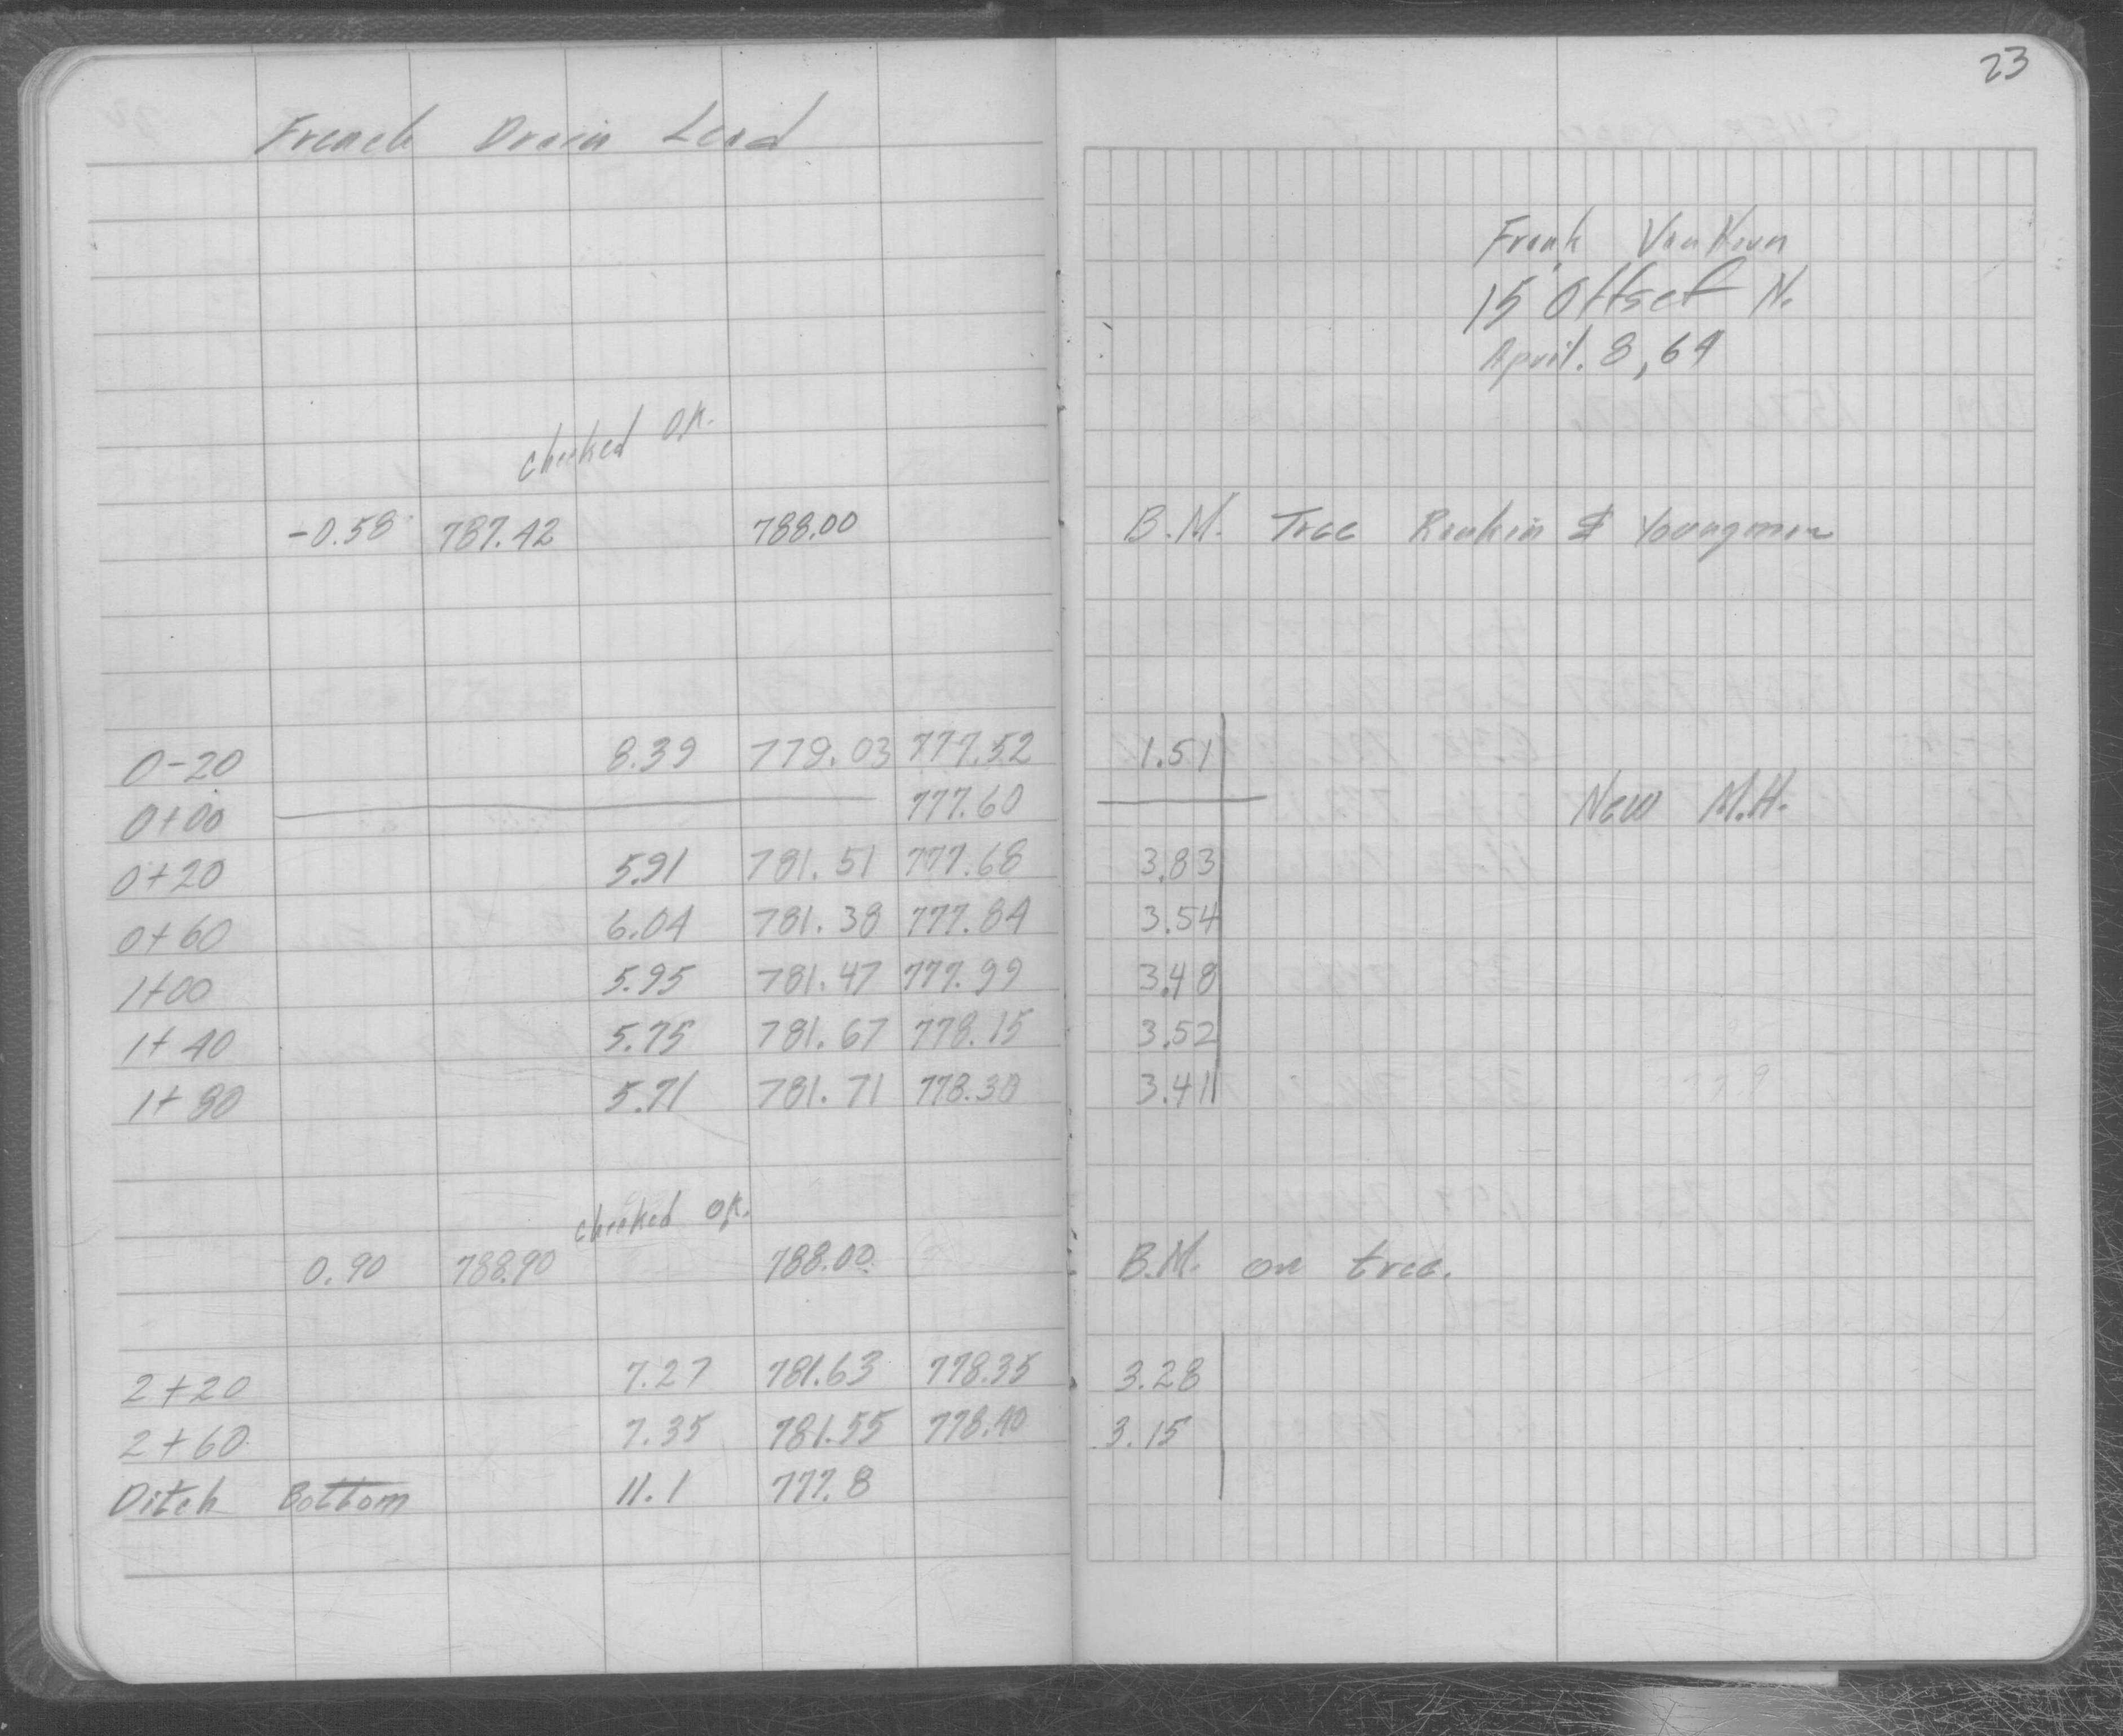 23
French Drain Lead
Frank VanKoun
15' Offset N.
April. 8, 69
checked O.K.
-0.58 787.42 788.00 B.M. Tree Rankin & Youngman
0-20 8.39 779.03 777.52 1.51
0+00 777.60 New M.H.
0+20 5.91 781.51 777.68 3.83
0+60 6.04 781.38 777.84 3.54
1+00 5.95 781.47 777.99 3.48
1+40 5.75 781.67 778.15 3.52
1+80 5.71 781.71 778.30 3.41
checked O.K.
0.90 788.90 788.00 B.M. on tree.
2+20 7.27 781.63 778.35 3.28
2+60 7.35 781.55 778.40 3.15
Ditch Bottom 11.1 777.8